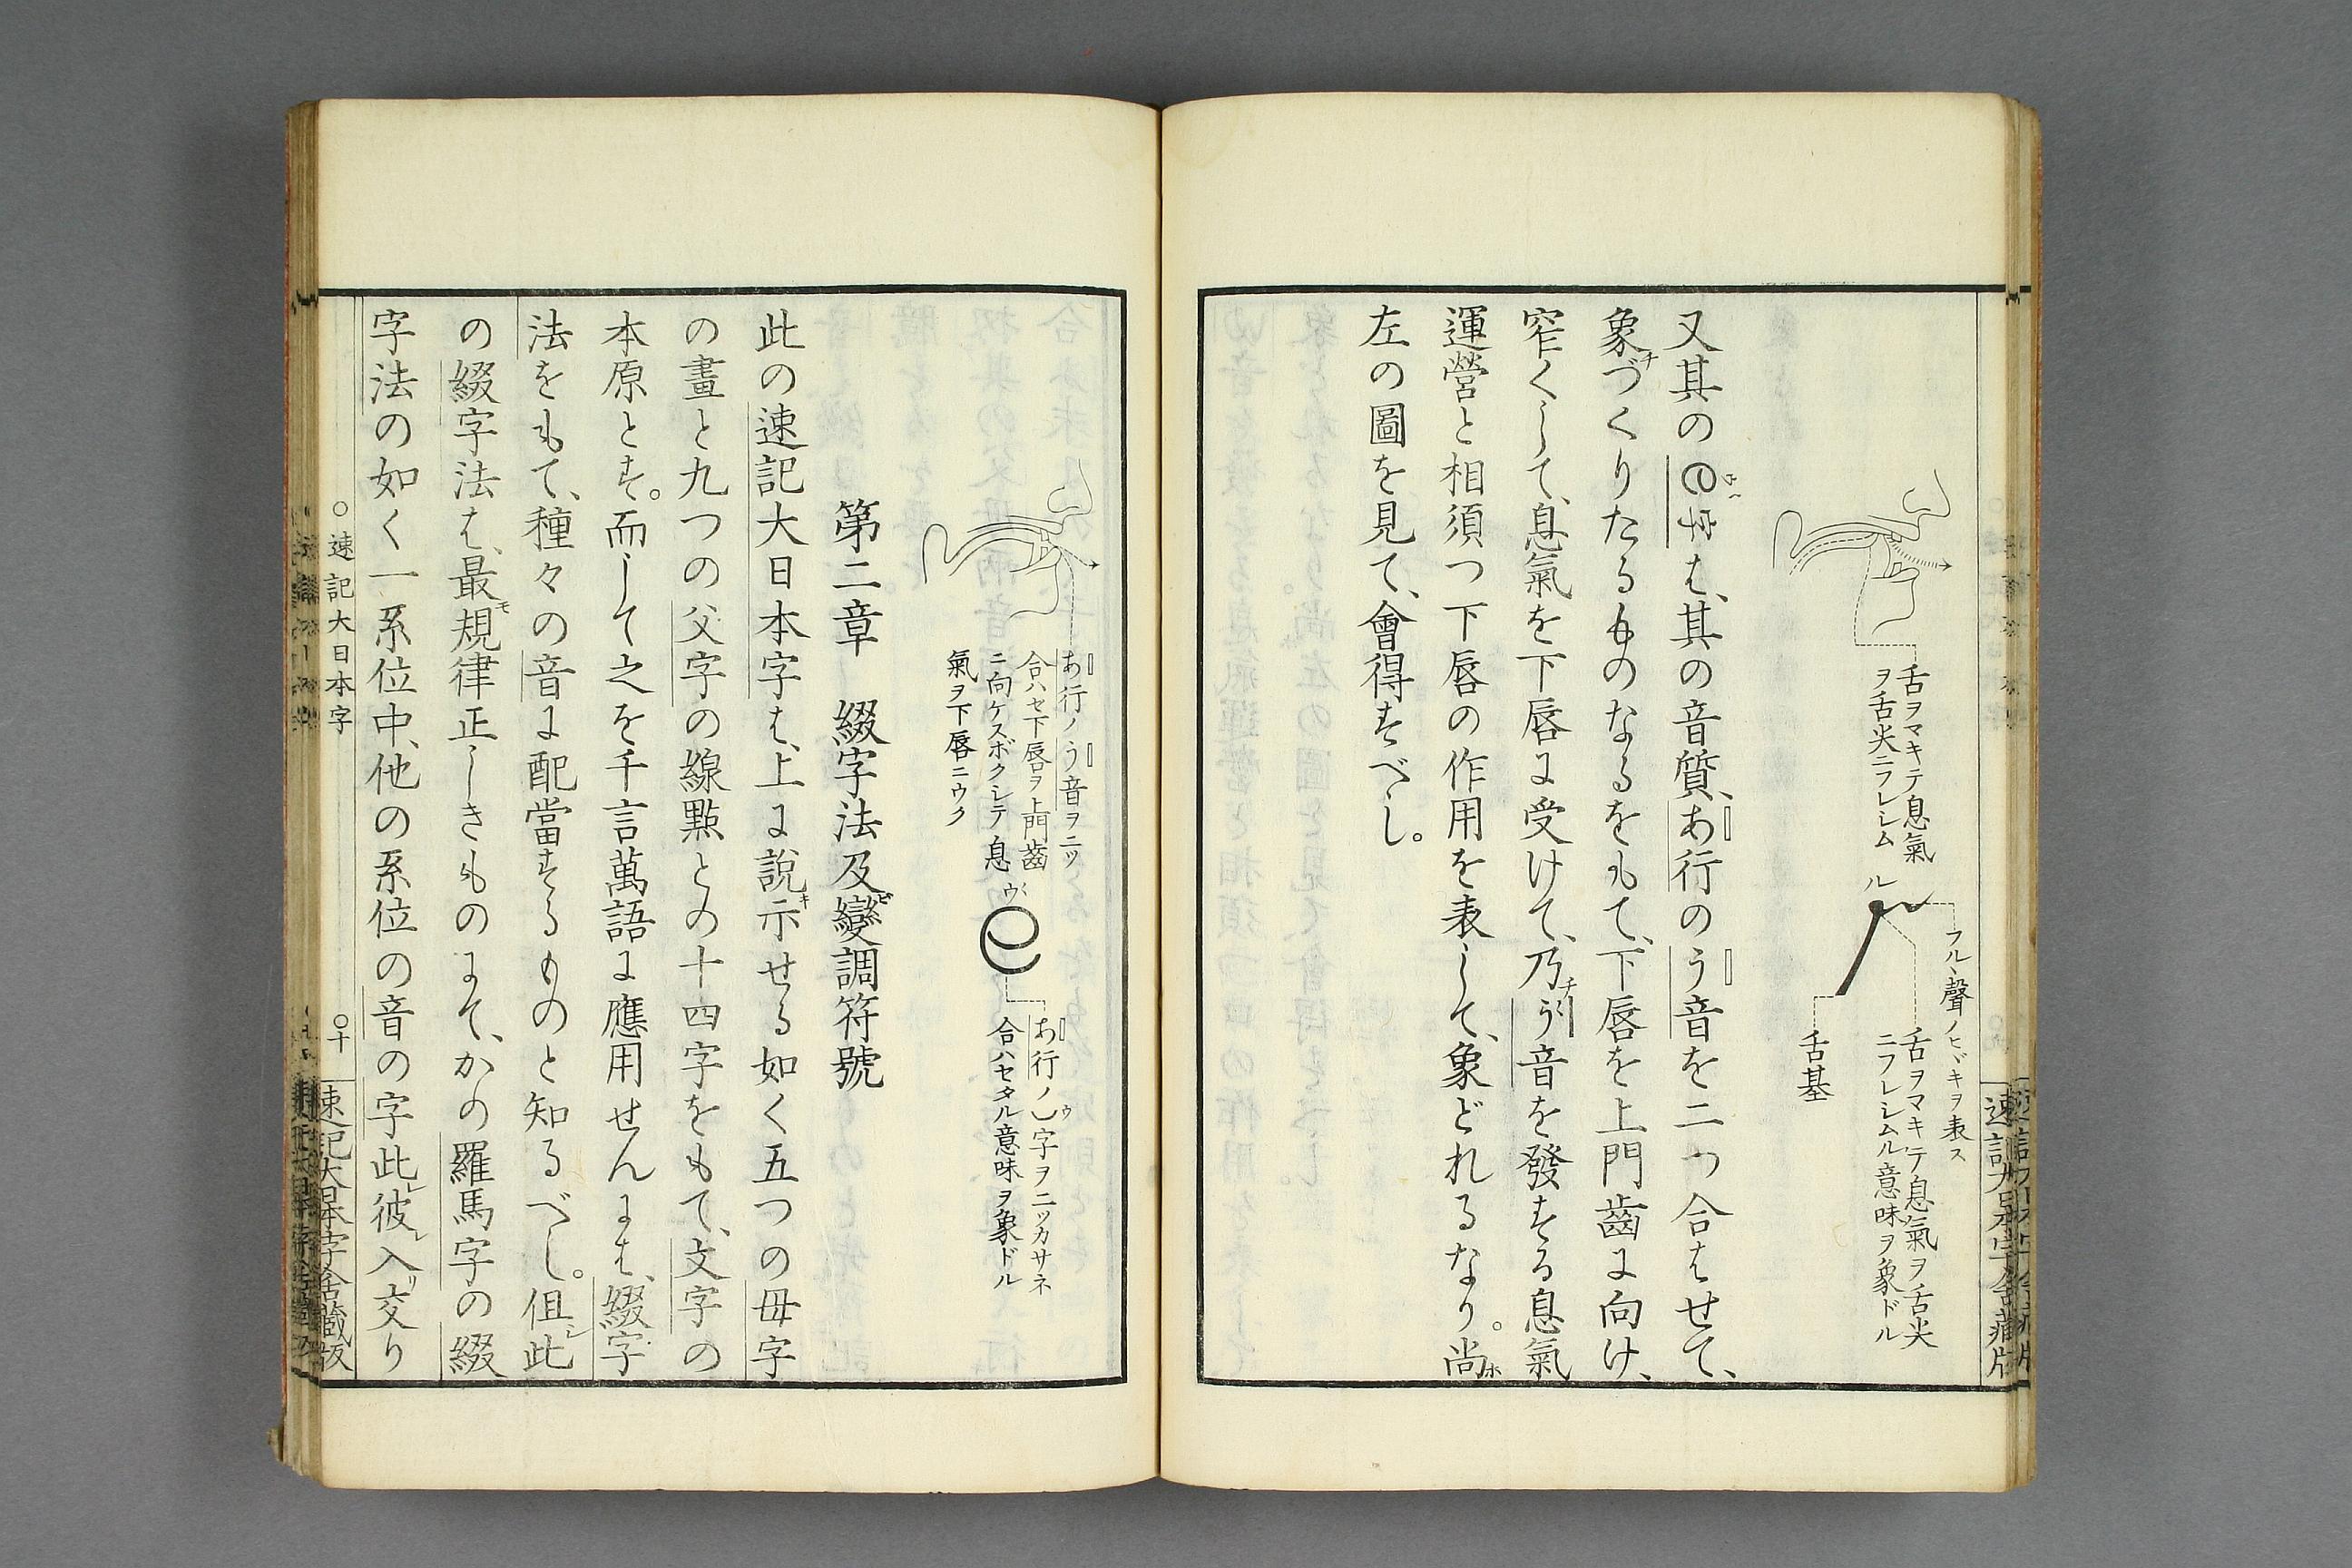 舌ヲマキテ息氣
ヲ舌尖ニフレシム
ル
フル聲ノヒヾキヲ表ス
舌ヲマキテ息氣ヲ舌尖
ニフレシムル意味ヲ象ドル
舌基
又其の字は、其の音質、あ行のう音を二つ合はせて、
象チづくりたるものなるをもて、下唇を上門齒に向け、
窄くして、息氣を下唇に受けて、乃チう音を發する息氣
運營と相須つ下唇の作用を表して、象どれるなり。尚ホ
左の圖を見て、會得すべし。
あ行ノう音ヲ二ツ
合ハセ下唇ヲ上門齒
ニ向ケスボクシテ息
氣ヲ下唇ニウク
ウ
あ行ノ字ヲ二ツカサネ
合ハセタル意味ヲ象ドル
第二章 綴字法及ビ變調符號
此の速記大日本字は、上に說キ示せる如く五つの母字
の畫と九つの父字の線點との十四字をもて、文字の
本原とす。而して之を千言萬語に應用せんには、綴字
法をもて、種々の音に配當するものと知るべし。但シ此
の綴字法は、最モ規律正しきものにて、かの羅馬字の綴
字法の如く一系位中、他の系位の音の字此レ彼レ入リ交り
○速記大日本字
○十
速記大日本字舍藏版